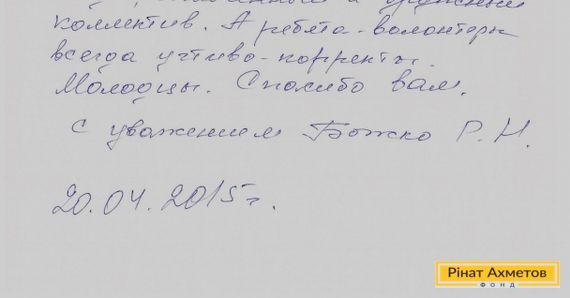 и дружный
коллектив. А ребята-волонтеры
всегда учтиво-корректы.
Молодцы. Спасибо вам.
С уважением Божко Р. Н.
20.04.2015г.
Рінат Ахметов
ФОНД